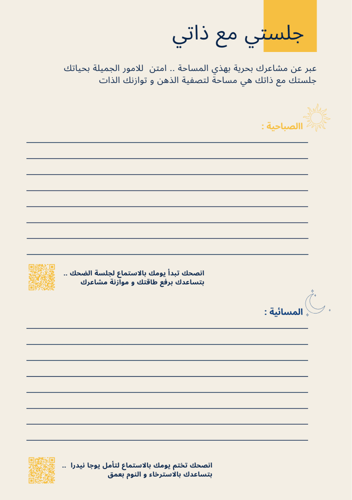 جلستي مع ذاتي
عبر عن مشاعرك بحرية بهذي المساحة .. امتن للامور الجميلة بحياتك
جلستك مع ذاتك هي مساحة لتصفية الذهن و توازنك الذات
االصباحية :
انصحك تبدأ يومك بالاستماع لجلسة الضحك ..
بتساعدك برفع طاقتك و موازنة مشاعرك
المسائية :
انصحك تختم يومك بالاستماع لتأمل يوجا نيدرا ..
بتساعدك بالاسترخاء و النوم بعمق